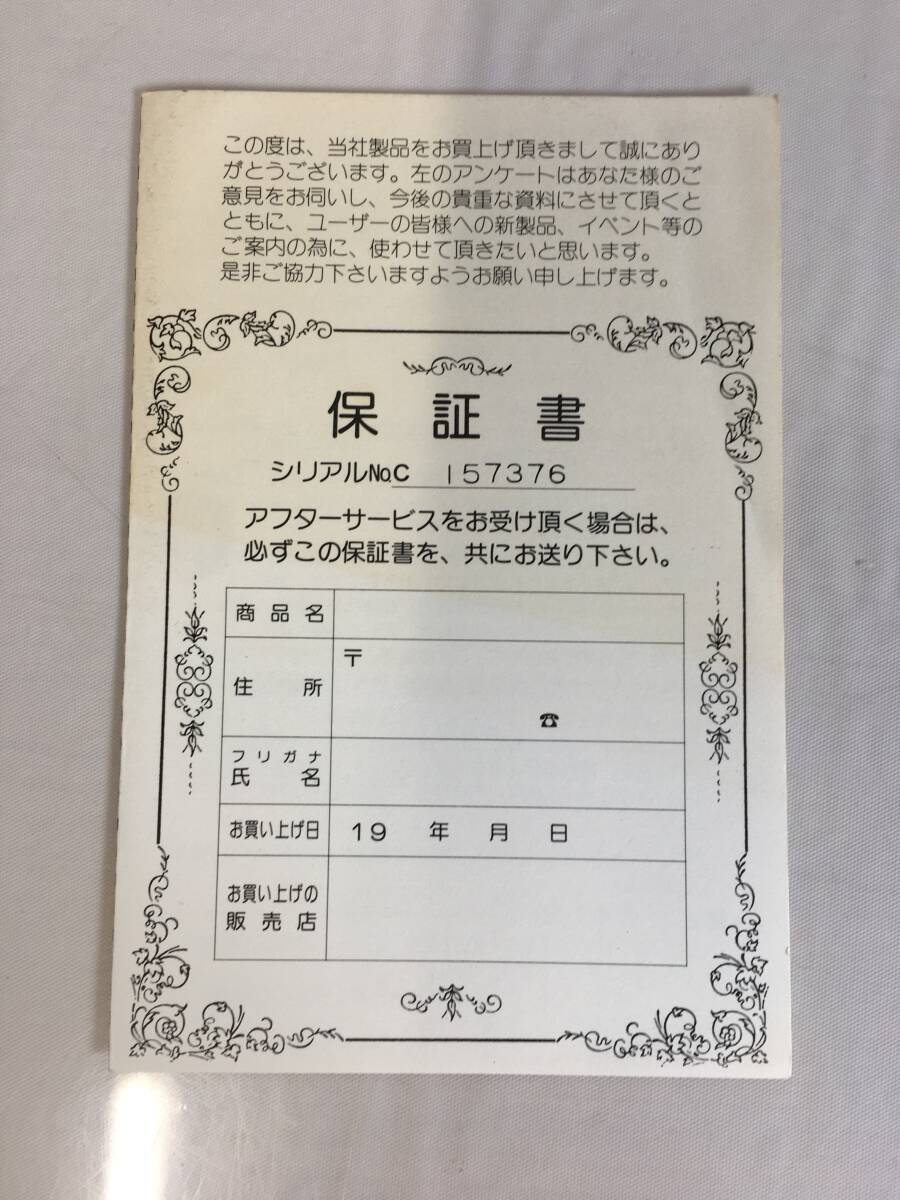 この度は、当社製品をお買上げ頂きまして誠にあり
がとうございます。左のアンケートはあなた様のご
意見をお伺いし、今後の貴重な資料にさせて頂くと
ともに、ユーザーの皆様への新製品、イベント等の
ご案内の為に、使わせて頂きたいと思います。
是非ご協力下さいますようお願い申し上げます。
保証書
シリアルNo.C 157376
アフターサービスをお受け頂く場合は、
必ずこの保証書を、共にお送り下さい。
商品名
住所 〒
☎
フリガナ
氏名
お買い上げ日 19 年 月 日
お買い上げの
販売店